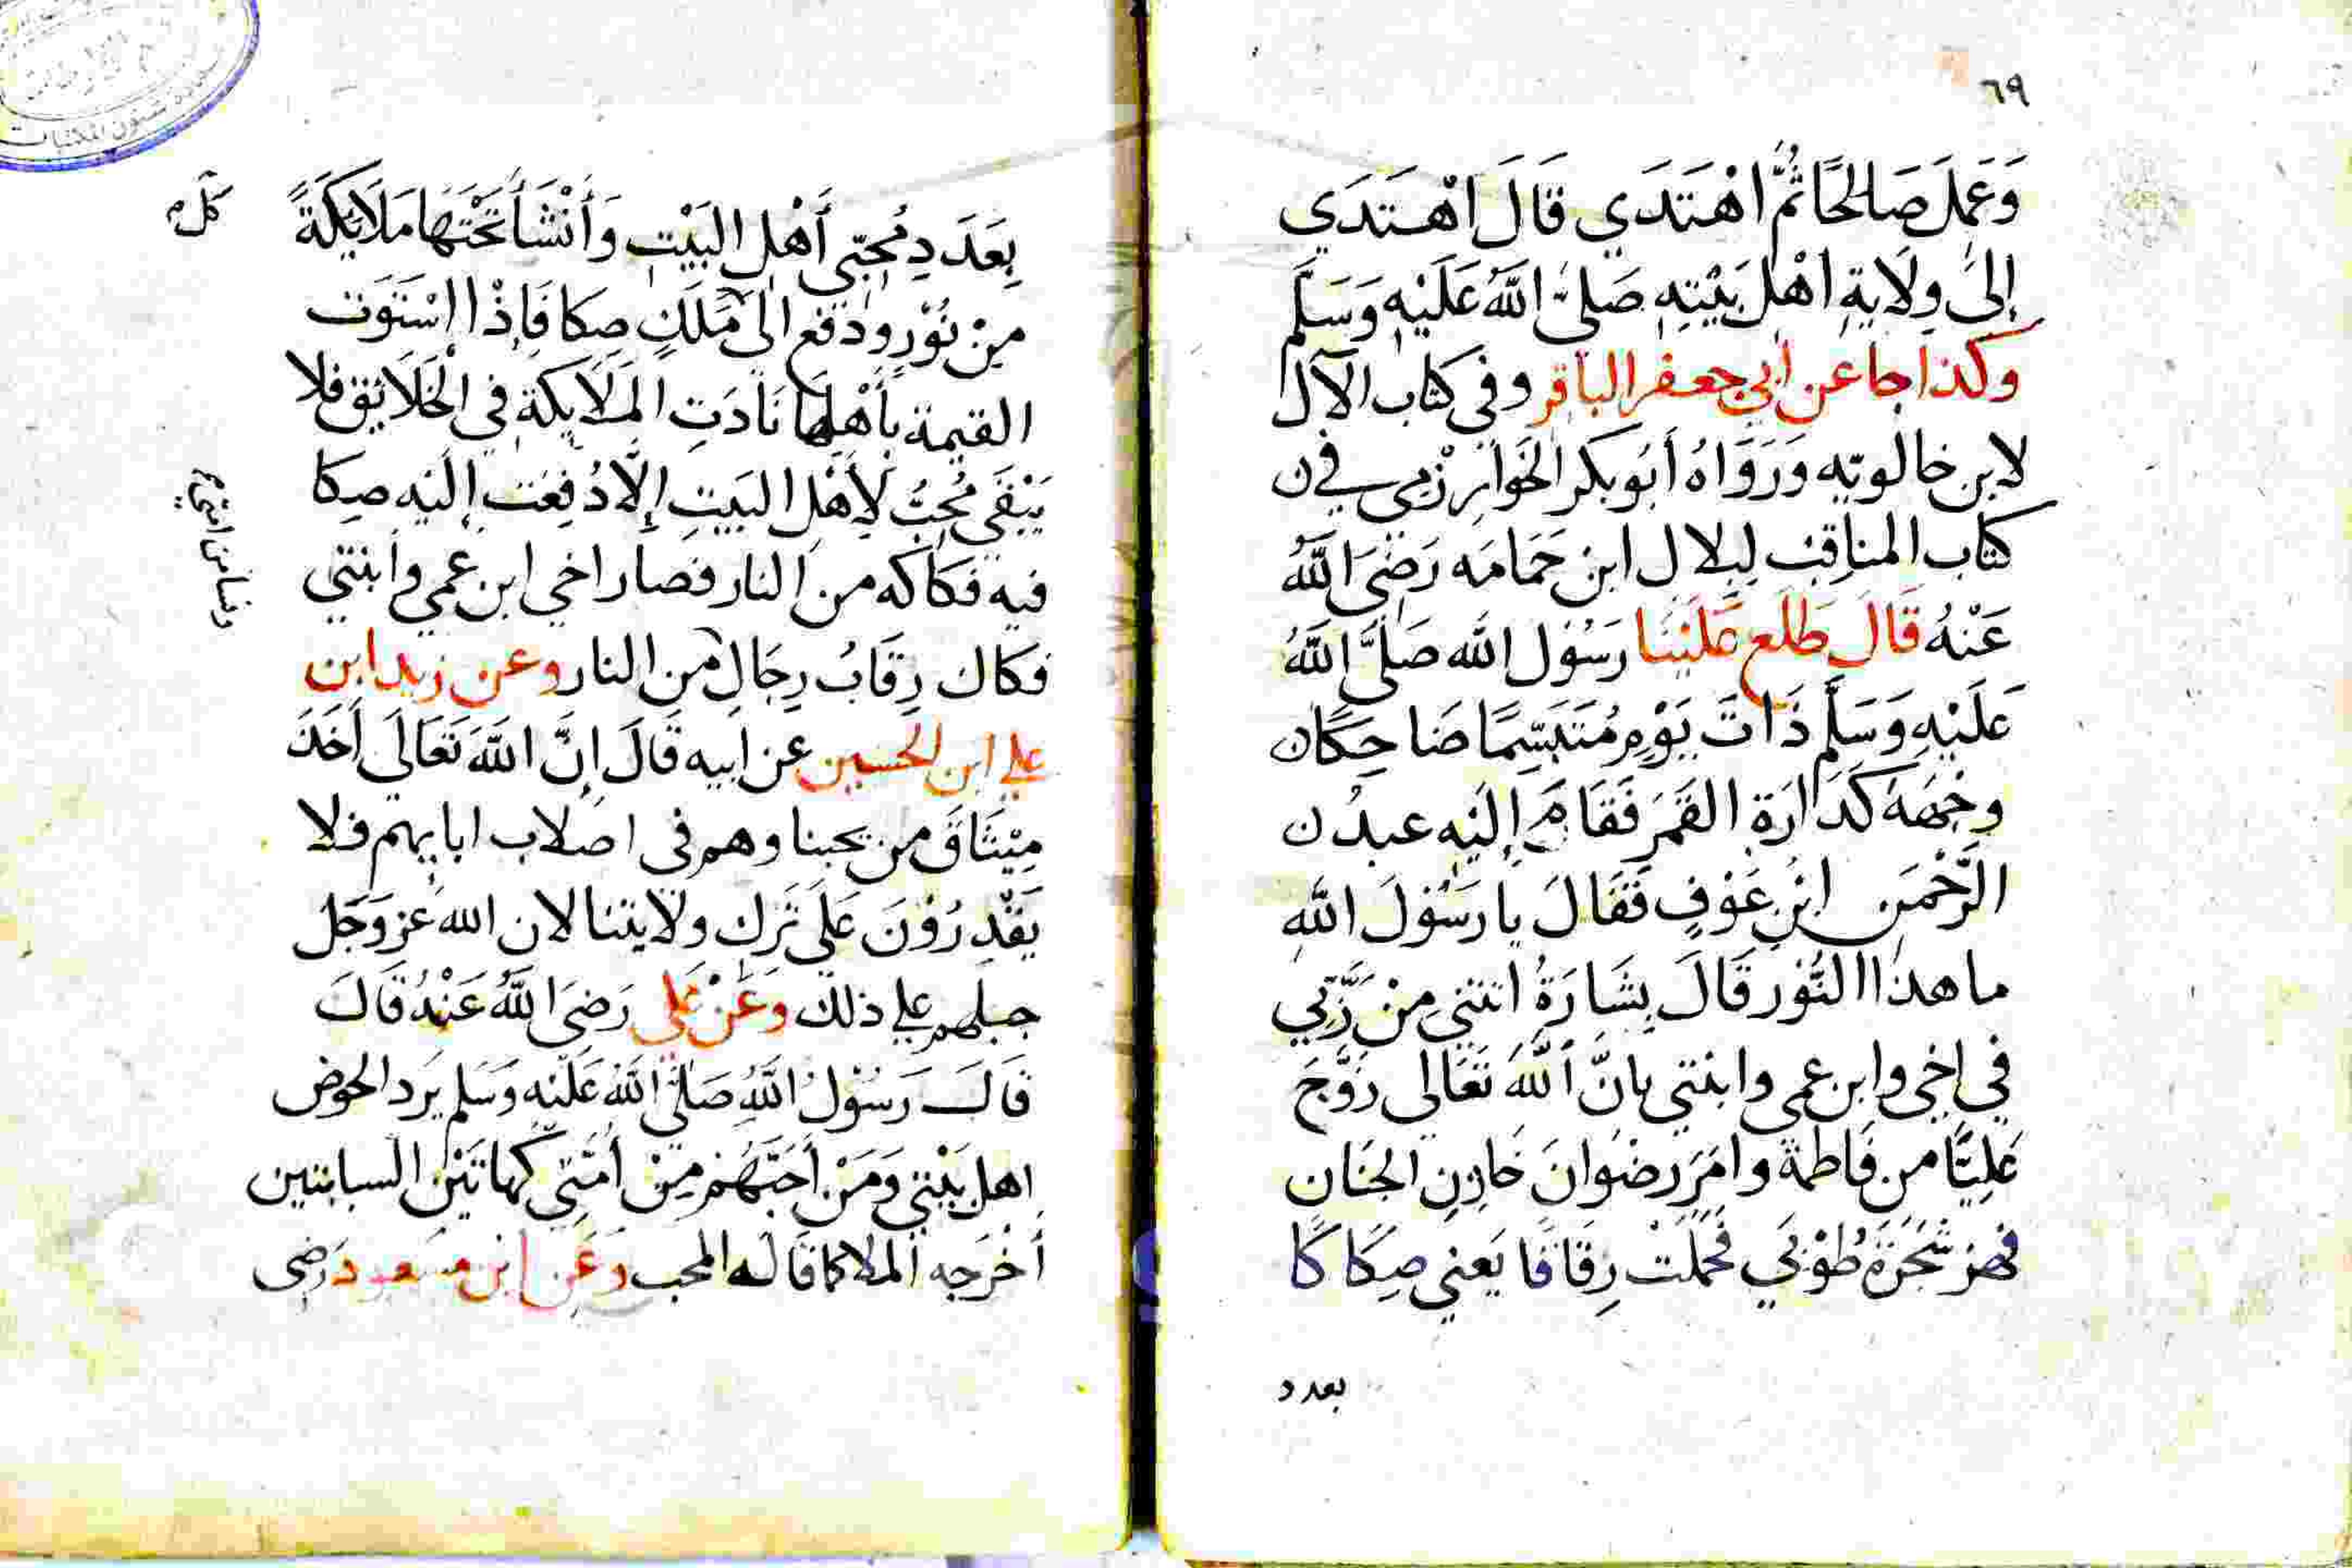 ٦٩
وَعَمِلَ صَالِحًا ثُمَّ اهْتَدَي قَالَ اهْتَدَي
إِلَى وِلَايَةِ اهْلِ بَيْتِهِ صَلَّى اللَّهُ عَلَيْهِ وَسَلَّمَ
وكذا جا عن أبي جعفر الباقر وفي كتاب الآل
لابن خالويّه وَرَوَاهُ أَبُو بكر الخَوَارزْمِي في
كتاب المناقِب لِبِلالِ ابن حَمَامَه رَضِيَ اللَّهُ
عَنْهُ قَالَ طَلَع عَلَيْنا رَسُول الله صَلَّى اللَّهُ
عَلَيْهِ وَسَلَّمَ ذَاتَ يَوْمٍ مُتَبَسِّمًا ضَاحِكًا
وجْهَهُ كَدَارَةِ القَمَرِ فَقَامَ إِلَيْهِ عبدُ
الرَّحْمَنِ ابْنِ عَوْفٍ فَقَالَ يا رَسُولَ اللَّهِ
ما هذا النُّوْر قَالَ بِشَارَةٌ اتتني مِنْ رَّبِّي
في اخِي وابن عمي وابنتي بانَّ اللَّهَ تَعَالى زَوَّجَ
عَلِيًّا من فَاطمةَ وامَرَ رِضْوانَ خَازِنِ الجِنَان
فهز شَجَرَةَ طُوْبَي فَحَمَلَتْ رِقَاقًا يَعني صِكَاكًا
بعدد
بِعَدَدِ مُحِبّي أَهْلِ البَيْتِ وَأَنْشَأَ تَحْتَهَا مَلَايِكَةً
مِنْ نُوْرٍ ودَفَع الَي مَلَكٍ صِكا فَإِذْا اسْتَوَت
القيمة بِأَهْلِهَا نَادَتِ المَلَايِكَة فِي الْخَلَائِق فلا
يَبْقَي مُحِبٌّ لِأَهْلِ البَيتِ إِلَّا دُفِعَت إِلَيْهِ صِكا
فيه فكاكه من النار فصار اخي ابن عمي وابنتي
فكاك رِقَابُ رِجَالٍ من النار وعن زيد ابن
علي ابن الحسين عن ابيه قَالَ إِنَّ اللَّهَ تَعَالَي أَخَذَ
مِيْثَاقَ من يحبنا وهم في اصلاب ابايهم فلا
يَقْدِرُوْنَ عَلَي تَركِ ولَايتنا لان الله عز وَجَل
جبلهم علي ذلك وَعَنْ عَلي رَضِيَ اللَّهُ عَنْهُ قَالَ
قَالَ رَسُوْلُ اللَّهِ صَلَّى اللَّهُ عَلَيْهِ وَسَلم يَرد الحوض
اهل بَيْتِي وَمَنْ أَحَبَّهُمْ مِنْ أُمَّتِي كهاتَيْن السبابتين
أَخْرَجه الملا كما قَالَه المحب وَعَنِ ابْنِ مَسعود رَضِي